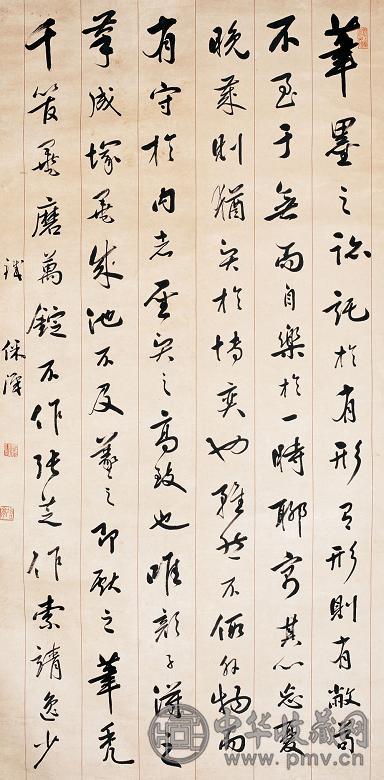 筆墨之跡託於有形有形則有敝苟
不至于無而自樂於一時聊寓其心忘憂
晚歲則猶賢於博奕也雖然不假外物而
有守於內者聖賢之高致也唯顏子得之
筆成塚墨成池不及羲之即獻之筆禿
千管墨磨萬錠不作張芝作索靖逸少
鐵保
中华收藏网
www.pmv.cn